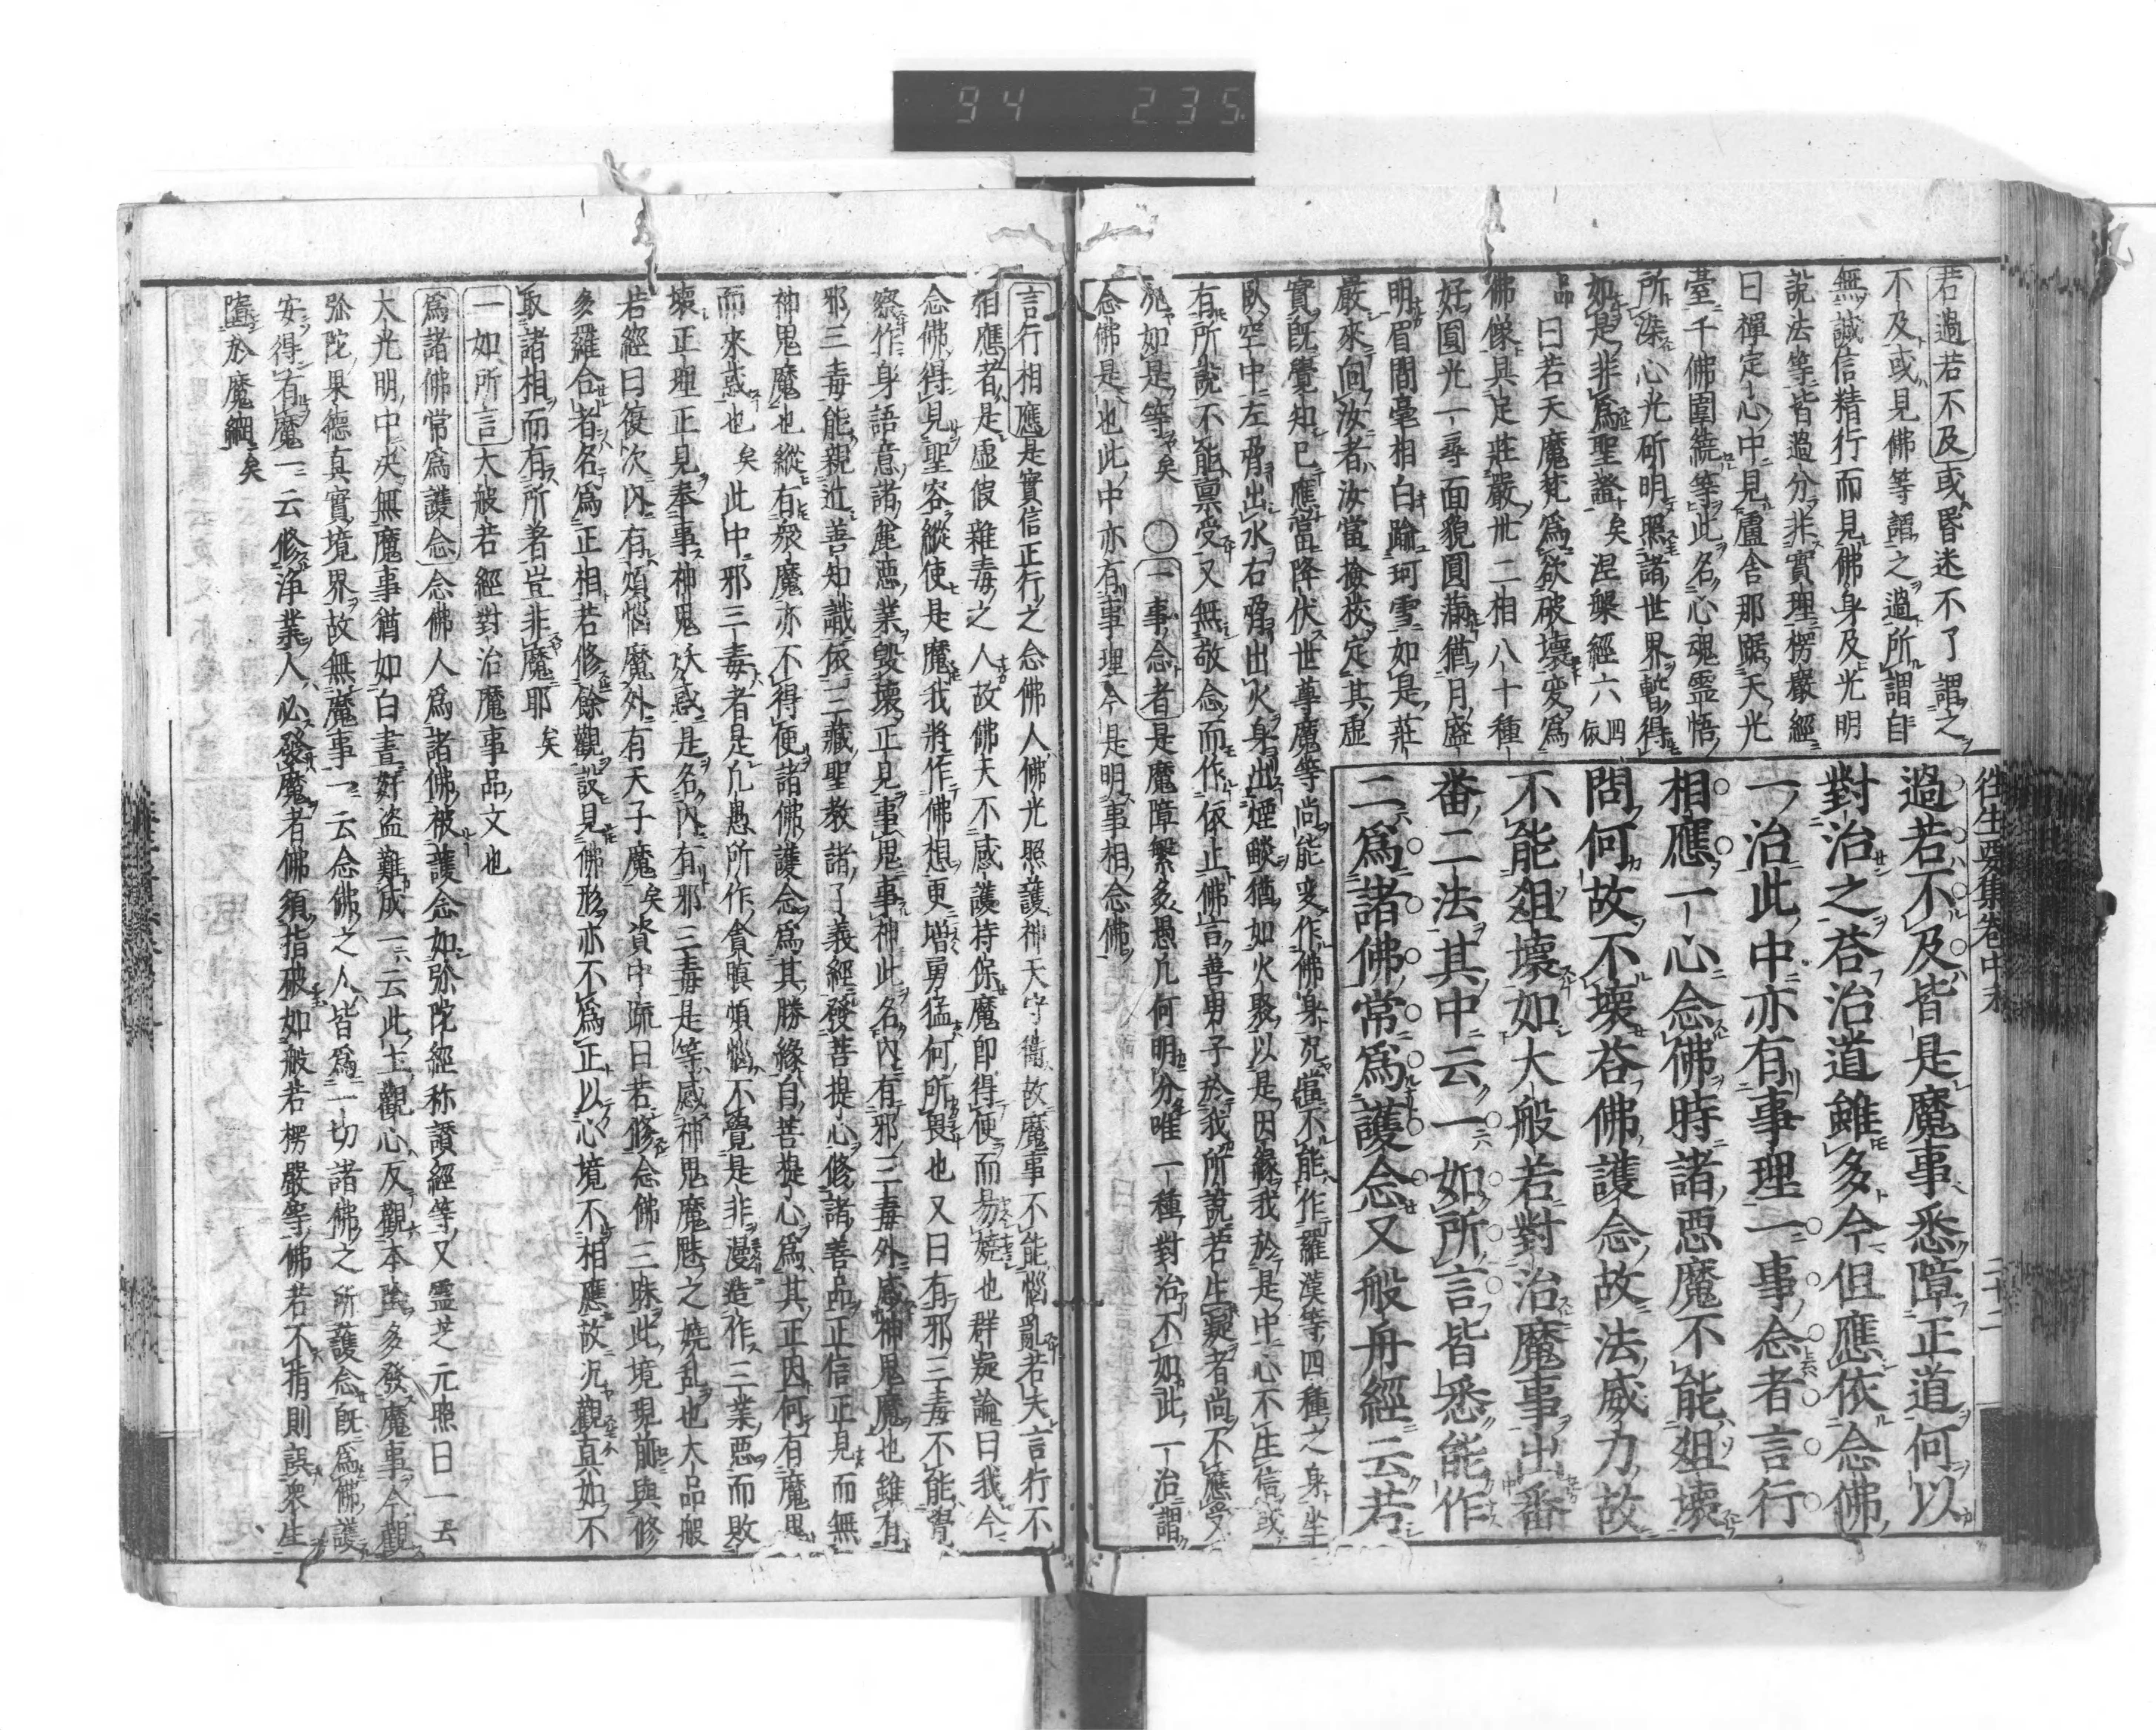 94 235
往生要集卷中末 二十二
過若不及皆是魔事悉障正道何以
對治之荅治道雖多今但應依念佛
一治此中亦有事理一事念者言行
相應一心念佛時諸惡魔不能爼壞
問何故不壞荅佛護念故法威力故
不能爼壞如大般若對治魔事出番
番二法其中云一如所言皆悉能作
二爲諸佛常爲護念又般舟經云若
若過若不及或昏迷不了謂之
不及或見佛等謂之過所謂自
無誠信精行而見佛身及光明
說法等皆過分非實理楞嚴經
曰禪定心中見盧舍那踞天光
臺千佛圍繞等此名心魂靈悟
所染心光斫明照諸世界暫得
如是非爲聖證矣涅槃經六四依
品曰若天魔梵爲欲破壞変爲
佛像具足莊嚴卅二相八十種
好圓光一尋面貌圓滿猶月盛
明眉間毫相白踰珂雪如是莊
嚴來向汝者汝當撿挍定其虛
實既覺知已應當降伏世尊魔等尚能変作佛身況當不能作羅漢等四種之身坐
臥空中左脅出水右脅出火身出煙㷔猶如火聚以是因緣我於是中心不生信或
有所說不能禀受又無敬念而作依止佛言善男子於我所說若生疑者尚不應受
況如是等矣 ○一事念者是魔障繁多愚凡何明分唯一種對治不如此一治謂
念佛是也此中亦有事理今是明事相念佛
言行相應是實信正行之念佛人佛光照護神天守衞故魔事不能惱亂若夫言行不
相應者是虛假雜毒之人故佛天不感護持保魔即得便而易嬈也群疑論曰我今
念佛得見聖容縱使是魔我將作佛想更增勇猛何所畏也又曰有邪三毒不能覺
察作身語意諸麁惡業毀壞正見事鬼事神此名內有邪三毒外感神鬼魔也雖有
邪三毒能親近善知識依三藏聖教諸了義經發菩提心修諸善品正信正見而無
神鬼魔也縱有衆魔亦不得便諸佛護念爲其勝緣自菩提心爲其正因何有魔鬼
而來惑也矣此中邪三毒者是凡愚所作貪瞋煩惱不覺是非漫造作三業惡而敗
壞正理正見奉事神鬼妖惑是名內有邪三毒是等感神鬼魔魅之嬈乱也大品般
若經曰復次內有煩惱魔外有天子魔矣資中疏曰若修念佛三昧此境現前與修
多羅合者名爲正相若修餘觀設見佛形亦不爲正以心境不相應故況觀真如不
取諸相而有所著豈非魔耶矣
一如所言大般若經對治魔事品文也
爲諸佛常爲護念念佛人爲諸佛被護念如弥陀經称讚經等又霊芝元照曰一云
大光明中决無魔事猶如白晝奸盗難成一云此土觀心反觀本陰多發魔事今觀
弥陀果德真實境界故無魔事一云念佛之人皆爲一切諸佛之所護念既爲佛護
安得有魔一云修淨業人必發魔者佛須指破如般若楞嚴等佛若不指則誤衆生
墮於魔網矣